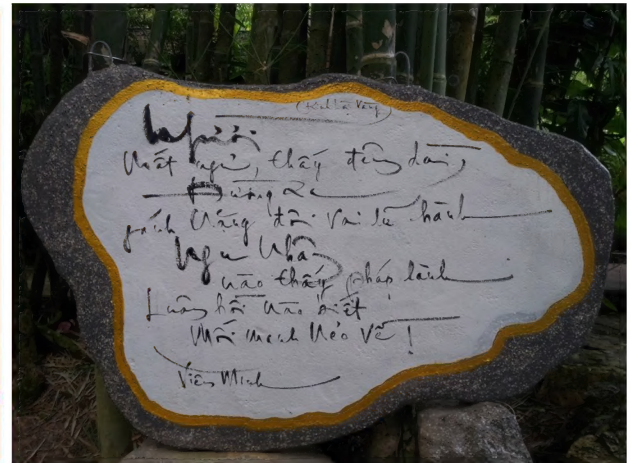 (Kinh Lời Vàng)
Người
mất ngủ, thấy đêm dài,
Đường xa
gánh nặng đôi vai lữ hành
Ngu nhân
nào thấy pháp lành
Luân hồi nào biết
mối manh nẻo về!
Viên Minh